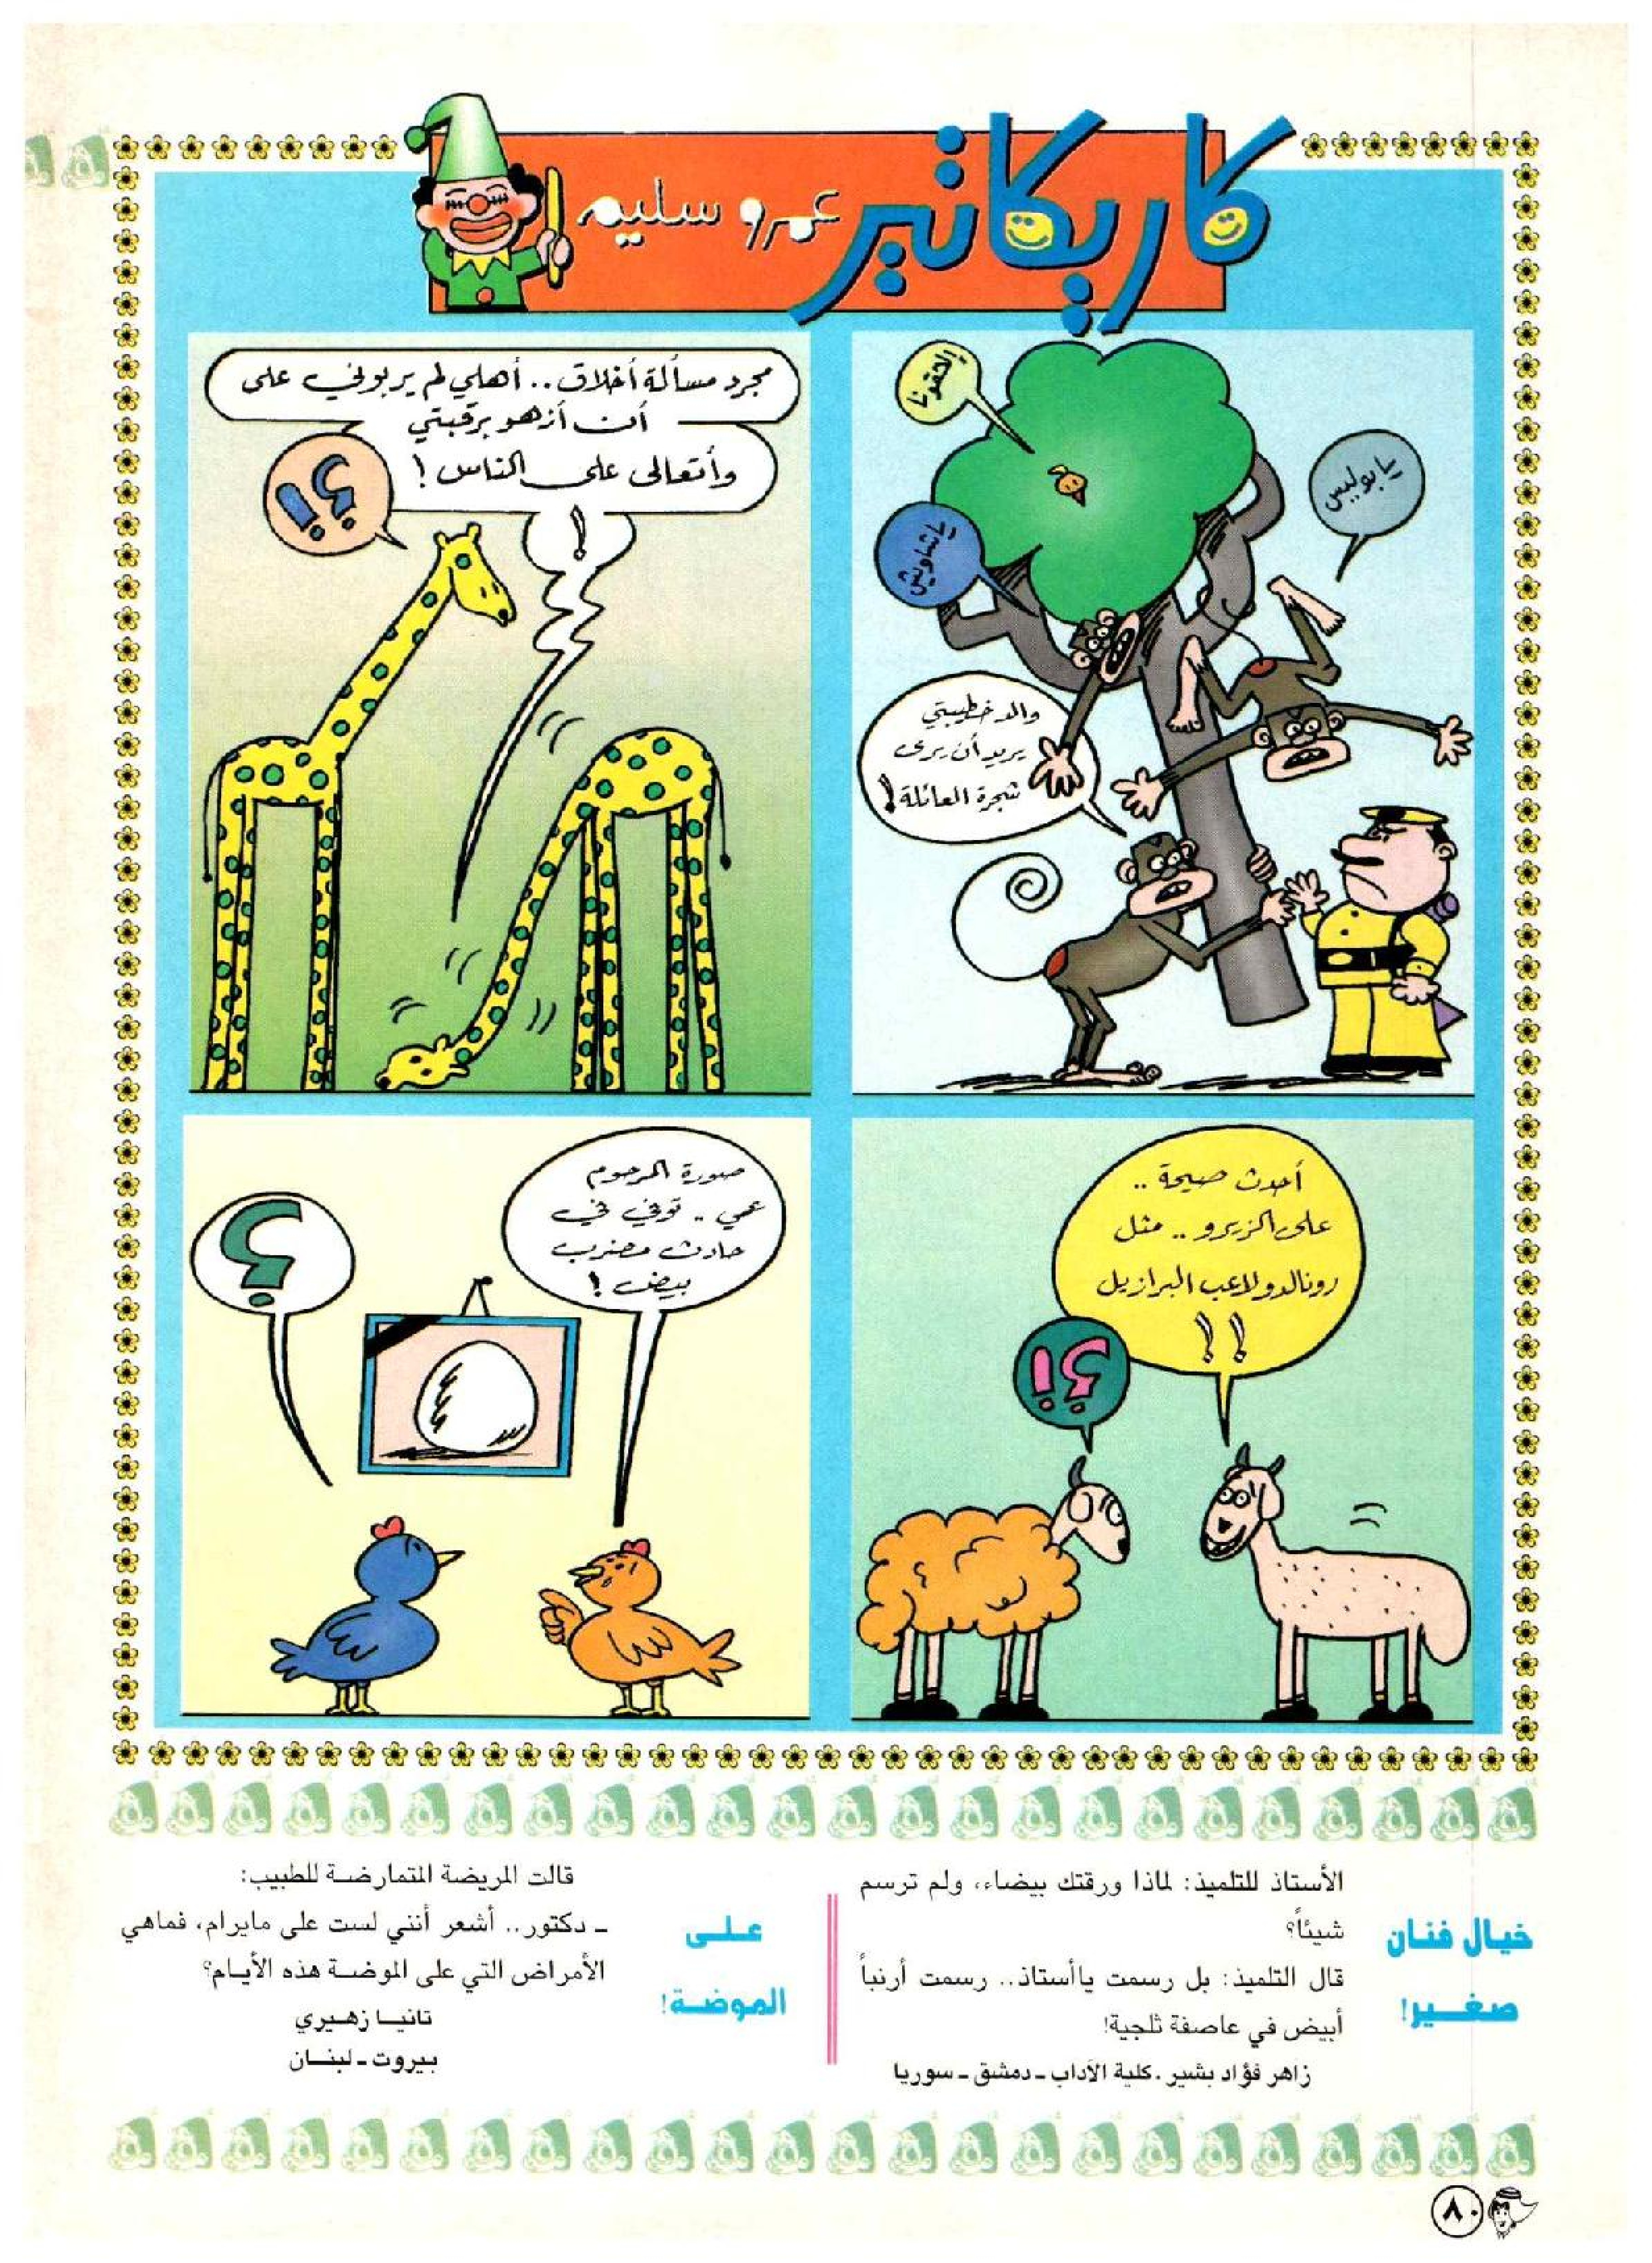 كاريكاتير
عمرو سليم
إلحقونا
يا بوليس
يا شاويش
والد خطيبتي
يريد أن يرى
شجرة العائلة!
مجرد مسألة أخلاق.. أهلي لم يربوني على
أن أزهو برقبتي
وأتعالى على الناس!
!
؟!
أحدث صيحة ..
على الزيرو .. مثل
رونالدو لاعب البرازيل
!!
؟!
صورة المرحوم
عمي .. توفي في
حادث مضرب
بيض!
؟
خيال فنان
صغير!
الأستاذ للتلميذ: لماذا ورقتك بيضاء، ولم ترسم
شيئاً؟
قال التلميذ: بل رسمت ياأستاذ.. رسمت أرنباً
أبيض في عاصفة ثلجية!
زاهر فؤاد بشير . كلية الآداب ـ دمشق ـ سوريا
على
الموضة!
قالت المريضة المتمارضة للطبيب:
ـ دكتور.. أشعر أنني لست على مايرام، فماهي
الأمراض التي على الموضة هذه الأيام؟
تانيا زهيري
بيروت ـ لبنان
٨٠